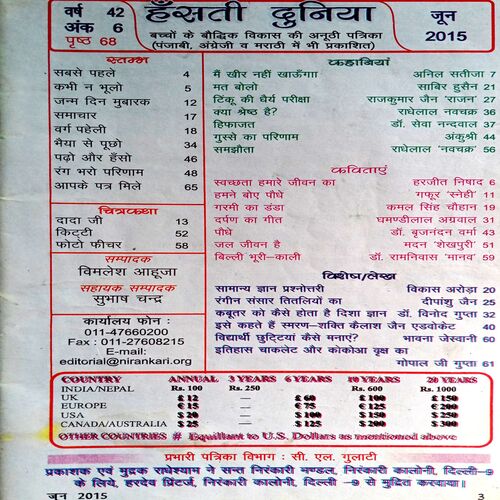 वर्ष 42
अंक 6
पृष्ठ 68
हँसती दुनिया
बच्चों के बौद्धिक विकास की अनूठी पत्रिका
(पंजाबी, अंग्रेजी व मराठी में भी प्रकाशित)
जून
2015
स्तम्भ
सबसे पहले 4
कभी न भूलो 5
जन्म दिन मुबारक 12
समाचार 17
वर्ग पहेली 18
भैया से पूछो 34
पढ़ो और हँसो 46
रंग भरो परिणाम 48
आपके पत्र मिले 65
चित्रकथा
दादा जी 13
किट्टी 52
फोटो फीचर 58
सम्पादक
विमलेश आहूजा
सहायक सम्पादक
सुभाष चन्द्र
कार्यालय फोन :
011-47660200
Fax : 011-27608215
E-mail:
editorial@nirankari.org
कहानियां
मैं खीर नहीं खाऊँगा अनिल सतीजा 7
मत बोलो साबिर हुसैन 21
टिंकू की धैर्य परीक्षा राजकुमार जैन 'राजन' 27
क्या श्रेष्ठ है? राधेलाल नवचक्र 36
हिफाजत डॉ. सेवा नन्दवाल 37
गुस्से का परिणाम अंकुश्री 44
समझौता राधेलाल 'नवचक्र' 56
कविताएं
स्वच्छता हमारे जीवन का हरजीत निषाद 6
हमने बोए पौधे गफूर 'स्नेही' 11
गरमी का डंडा कमल सिंह चौहान 19
दर्पण का गीत घमण्डीलाल अग्रवाल 31
पौधे डॉ. बृजनंदन वर्मा 43
जल जीवन है मदन 'शेखपुरी' 51
बिल्ली भूरी-काली डॉ. रामनिवास 'मानव' 59
विशेष/लेख
सामान्य ज्ञान प्रश्नोत्तरी विकास अरोड़ा 20
रंगीन संसार तितलियों का दीपांशु जैन 25
कबूतर को कैसे होता है दिशा ज्ञान डॉ. विनोद गुप्ता 32
इसे कहते हैं स्मरण-शक्ति कैलाश जैन एडवोकेट 40
विद्यार्थी छुट्टियां कैसे मनाएं? भावना जेस्वानी 60
इतिहास चाकलेट और कोकोआ वृक्ष का
गोपाल जी गुप्ता 61
COUNTRY ANNUAL 3 YEARS 6 YEARS 10 YEARS 20 YEARS
INDIA/NEPAL Rs. 100 Rs. 250 Rs. 600 Rs. 1000
UK £ 12 — £ 60 £ 100 £ 150
EUROPE € 15 — € 75 € 125 € 200
USA $ 20 — $ 100 $ 150 $ 250
CANADA/AUSTRALIA $ 25 — $ 125 $ 200 $ 300
OTHER COUNTRIES # Equillant to U.S. Dollars as mentioned above
प्रभारी पत्रिका विभाग : सी. एल. गुलाटी
प्रकाशक एवं मुद्रक राधेश्याम ने सन्त निरंकारी मण्डल, निरंकारी कालोनी, दिल्ली-9
के लिये, हरदेव प्रिंटर्ज, निरंकारी कालोनी, दिल्ली-9 से मुद्रित करवाया।
जून 2015 3